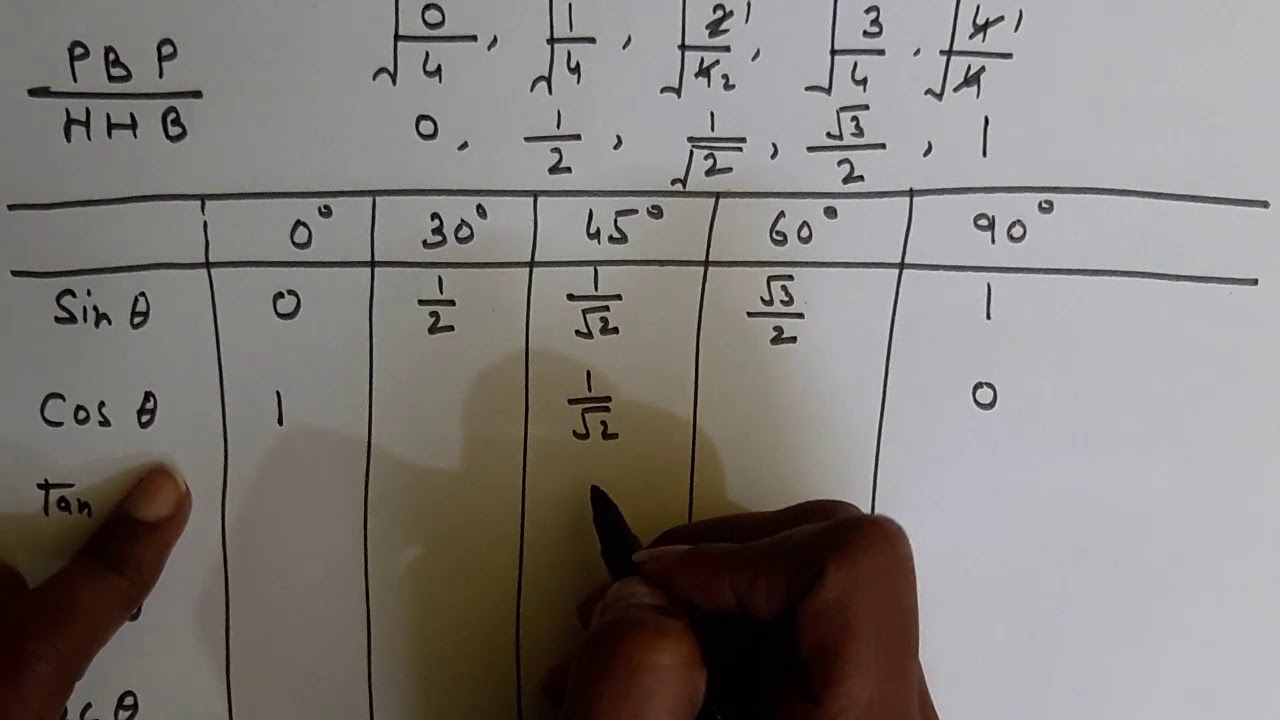 P B P
H H B
√0/4, √1/4, √2/4, √3/4, √4/4
1 2 1
0, 1/2, 1/√2, √3/2, 1
0° 30° 45° 60° 90°
Sin θ 0 1/2 1/√2 √3/2 1
Cos θ 1 1/√2 0
Tan
θ